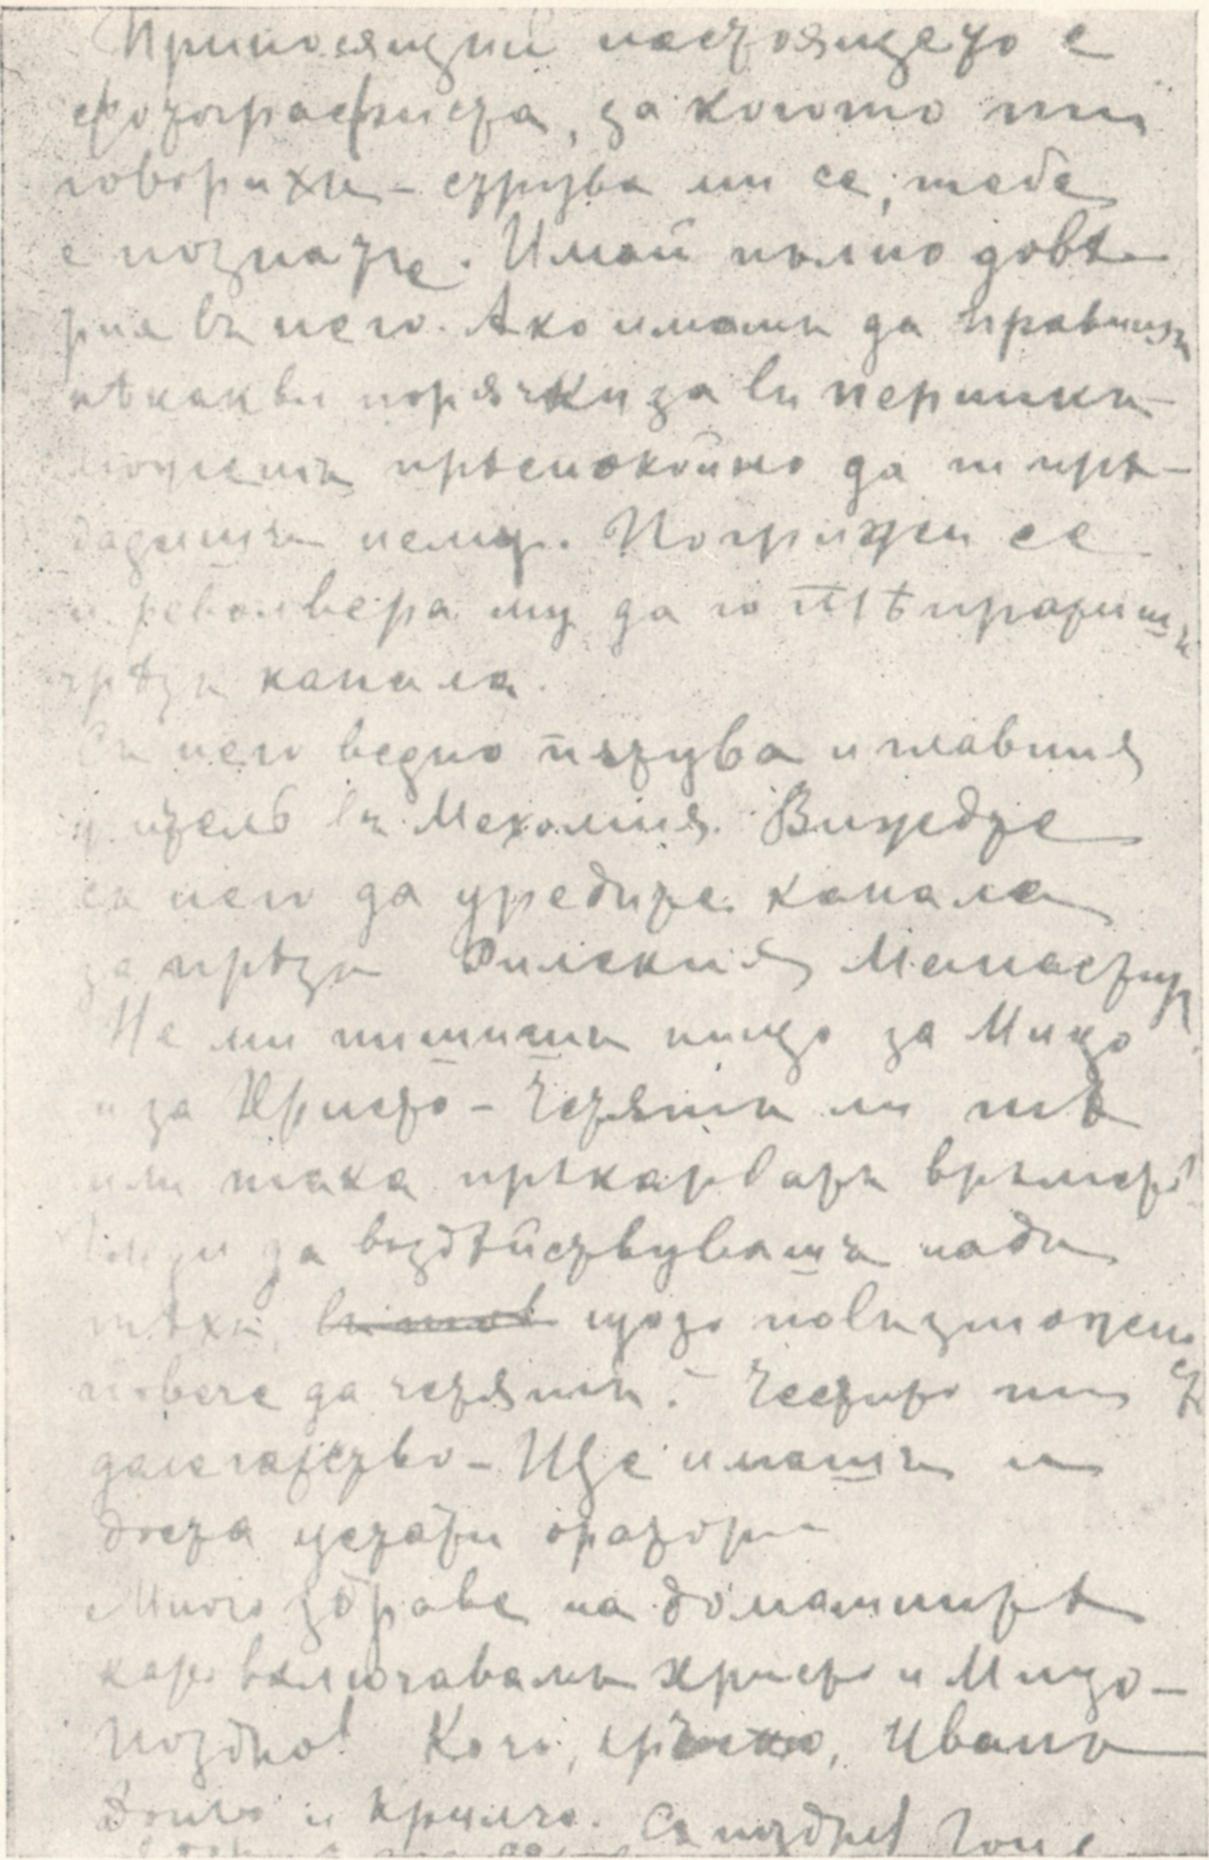 Приносящий настоящето е
фотографиста, за когото ти
говорихъ – струва ми се, тебе
е познатъ. Имай пълно довѣ-
рие въ него. Ако имашъ да правишъ
нѣкакви порѫчки за въ
можешъ прѣспокойно да ги прѣ-
дадешъ нему. Погрижи се
и револвера му да го прѣпратишъ
прѣзъ канала.
Съ него ведно пѫтува и главния
учитель въ Мехомия. Виждте
съ него да уредите канала
за прѣзъ Рилския Манастиръ.
Не ми пишешъ нищо за Мицо
и за Христо – Четятъ ли тѣ
или така прѣкарватъ врѣмето?
да въздѣйствувашъ надъ
тѣхъ, щото по възможность
повече да четятъ. Честито ти
делегатство – Ще имашъ и
доста устати оратори
Много здраве на домашнитѣ
като включавамъ Христо и Мицо –
Поздрав! Кочо, Иванъ
и Кримчо. Съ поздрав Гоце